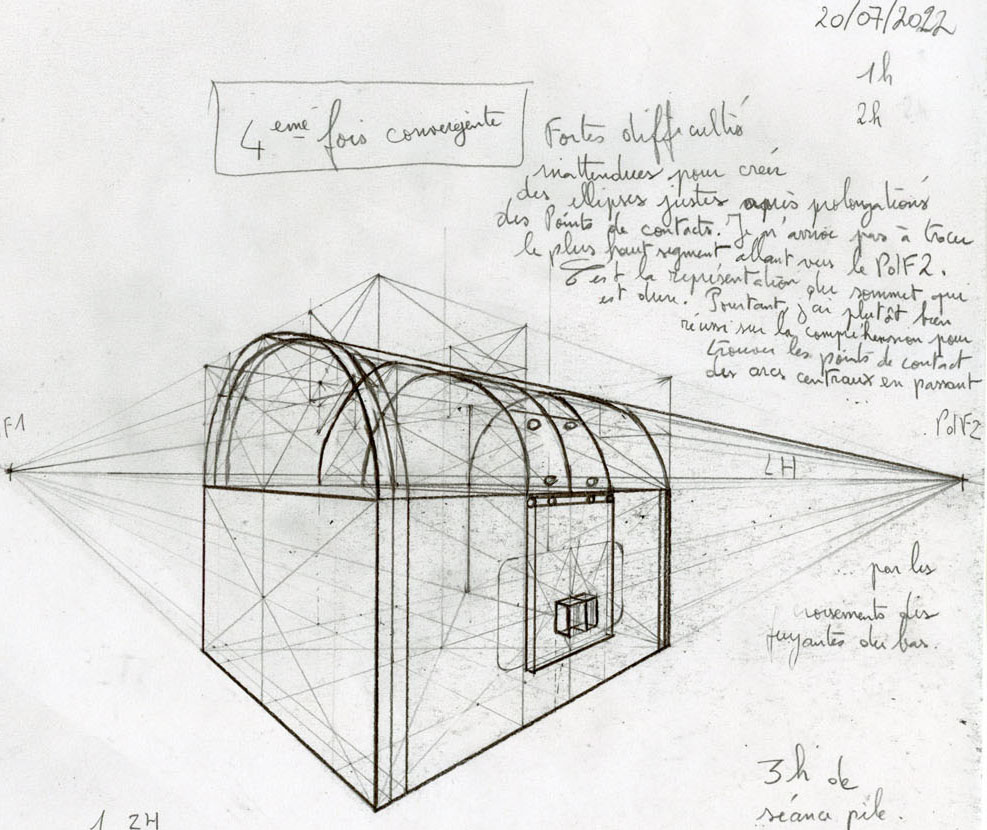 20/07/2022
1h
2h
4 eme fois convergente
Fortes difficultés
inattendues pour créer
des ellipses justes après prolongations
des Points de contacts. Je n'arrive pas à tracer
le plus haut segment allant vers le PdF2.
C'est la représentation du sommet qui
est dure. Pourtant, j'ai plutôt bien
réussi sur la compréhension pour
trouver les points de contact
des arcs centraux en passant
F1
PdF2
LH
par les
croisements des
fuyantes du bas.
3h de
séance pile.
1 2H